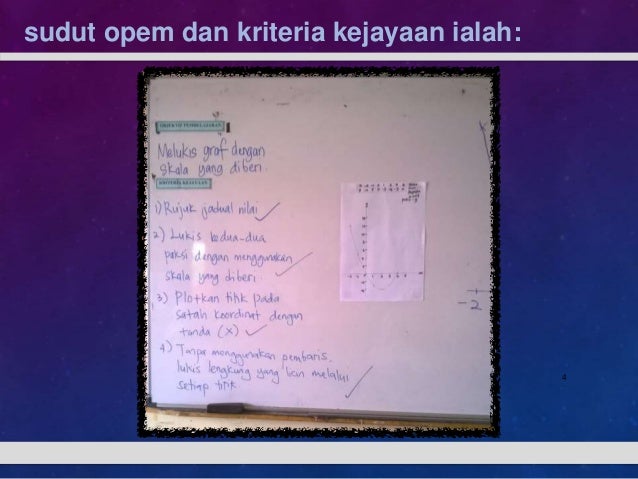 sudut opem dan kriteria kejayaan ialah:
OBJEKTIF PEMBELAJARAN
Melukis graf dengan
skala yang diberi.
KRITERIA KEJAYAAN
1) Rujuk jadual nilai ✓
2) Lukis kedua-dua
paksi dengan menggunakan
skala yang diberi. ✓
3) Plotkan titik pada
satah koordinat dengan
tanda (x) ✓
4) Tanpa menggunakan pembaris,
lukis lengkung yang licin melalui
setiap titik ✓
1
-2
4